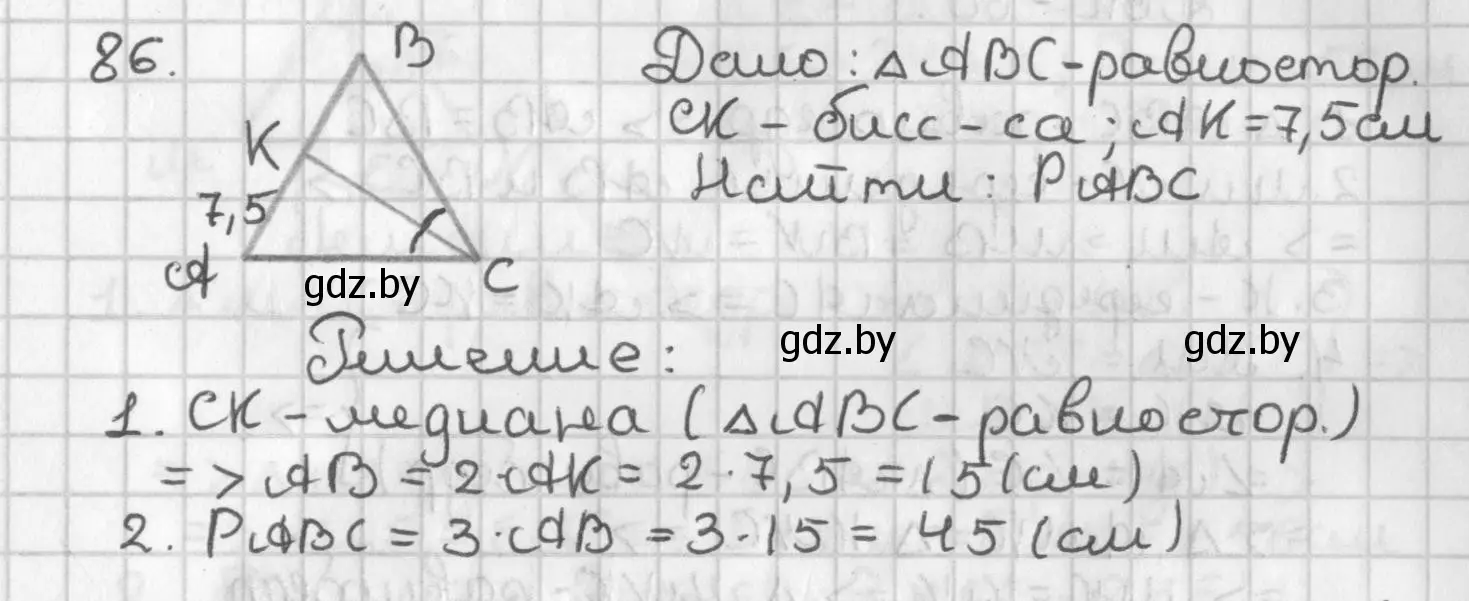 86.
B
K
7,5
A
C
Дано: △ABC-равностор.
CK - бисс-са; AK=7,5см
Найти: PABC
gdz.by
Решение:
gdz.by
gdz.by
1. CK-медиана (△ABC-равностор.)
=> AB = 2·AK = 2·7,5 = 15 (см)
2. PABC = 3·AB = 3·15 = 45 (см)